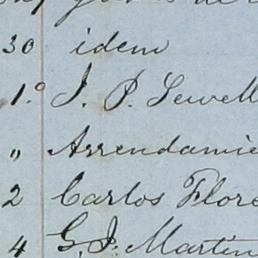 30 idem
1.º J. P. Sewell
„ Arrendamie
2 Carlos Flore
4 G. J. Martin